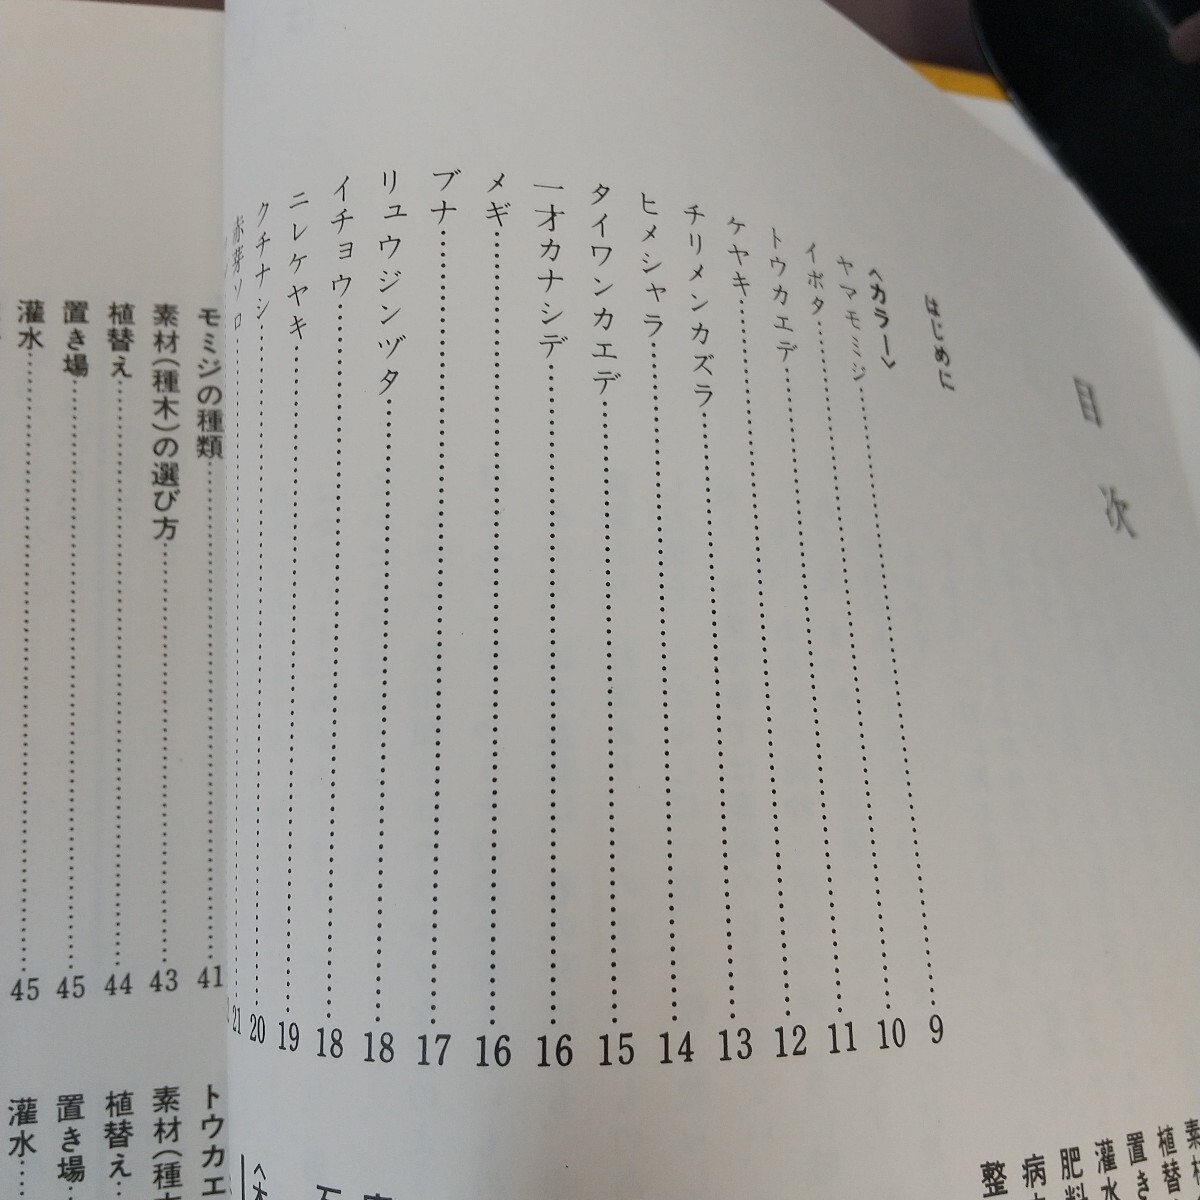 目次
はじめに
〈カラー〉
ヤマモミジ……9
イボタ……10
トウカエデ……11
ケヤキ……12
チリメンカズラ……13
ヒメシャラ……14
タイワンカエデ……15
一才カナシデ……16
メギ……16
ブナ……17
リュウジンヅタ……18
イチョウ……18
ニレケヤキ……19
クチナシ……20
赤芽ソロ……21
素材
植替
置き
灌水
肥料
病
整
モミジの種類……41
素材(種木)の選び方……43
植替え……44
置き場……45
灌水……45
トウカエ
素材(種
植替え…
置き場…
灌水…